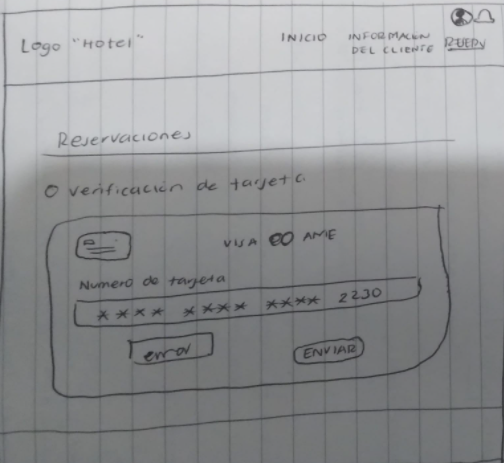 Logo "Hotel"
INICIO
INFORMACION
DEL CLIENTE
Reservaciones
verificación de tarjeta
VISA
Numero de tarjeta
**** **** **** 2230
error
ENVIAR